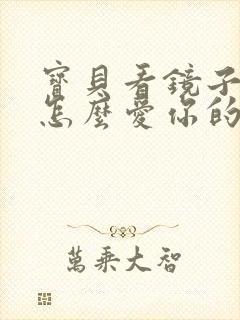 寶貝看鏡子
怎麼愛你的
萬乘大智